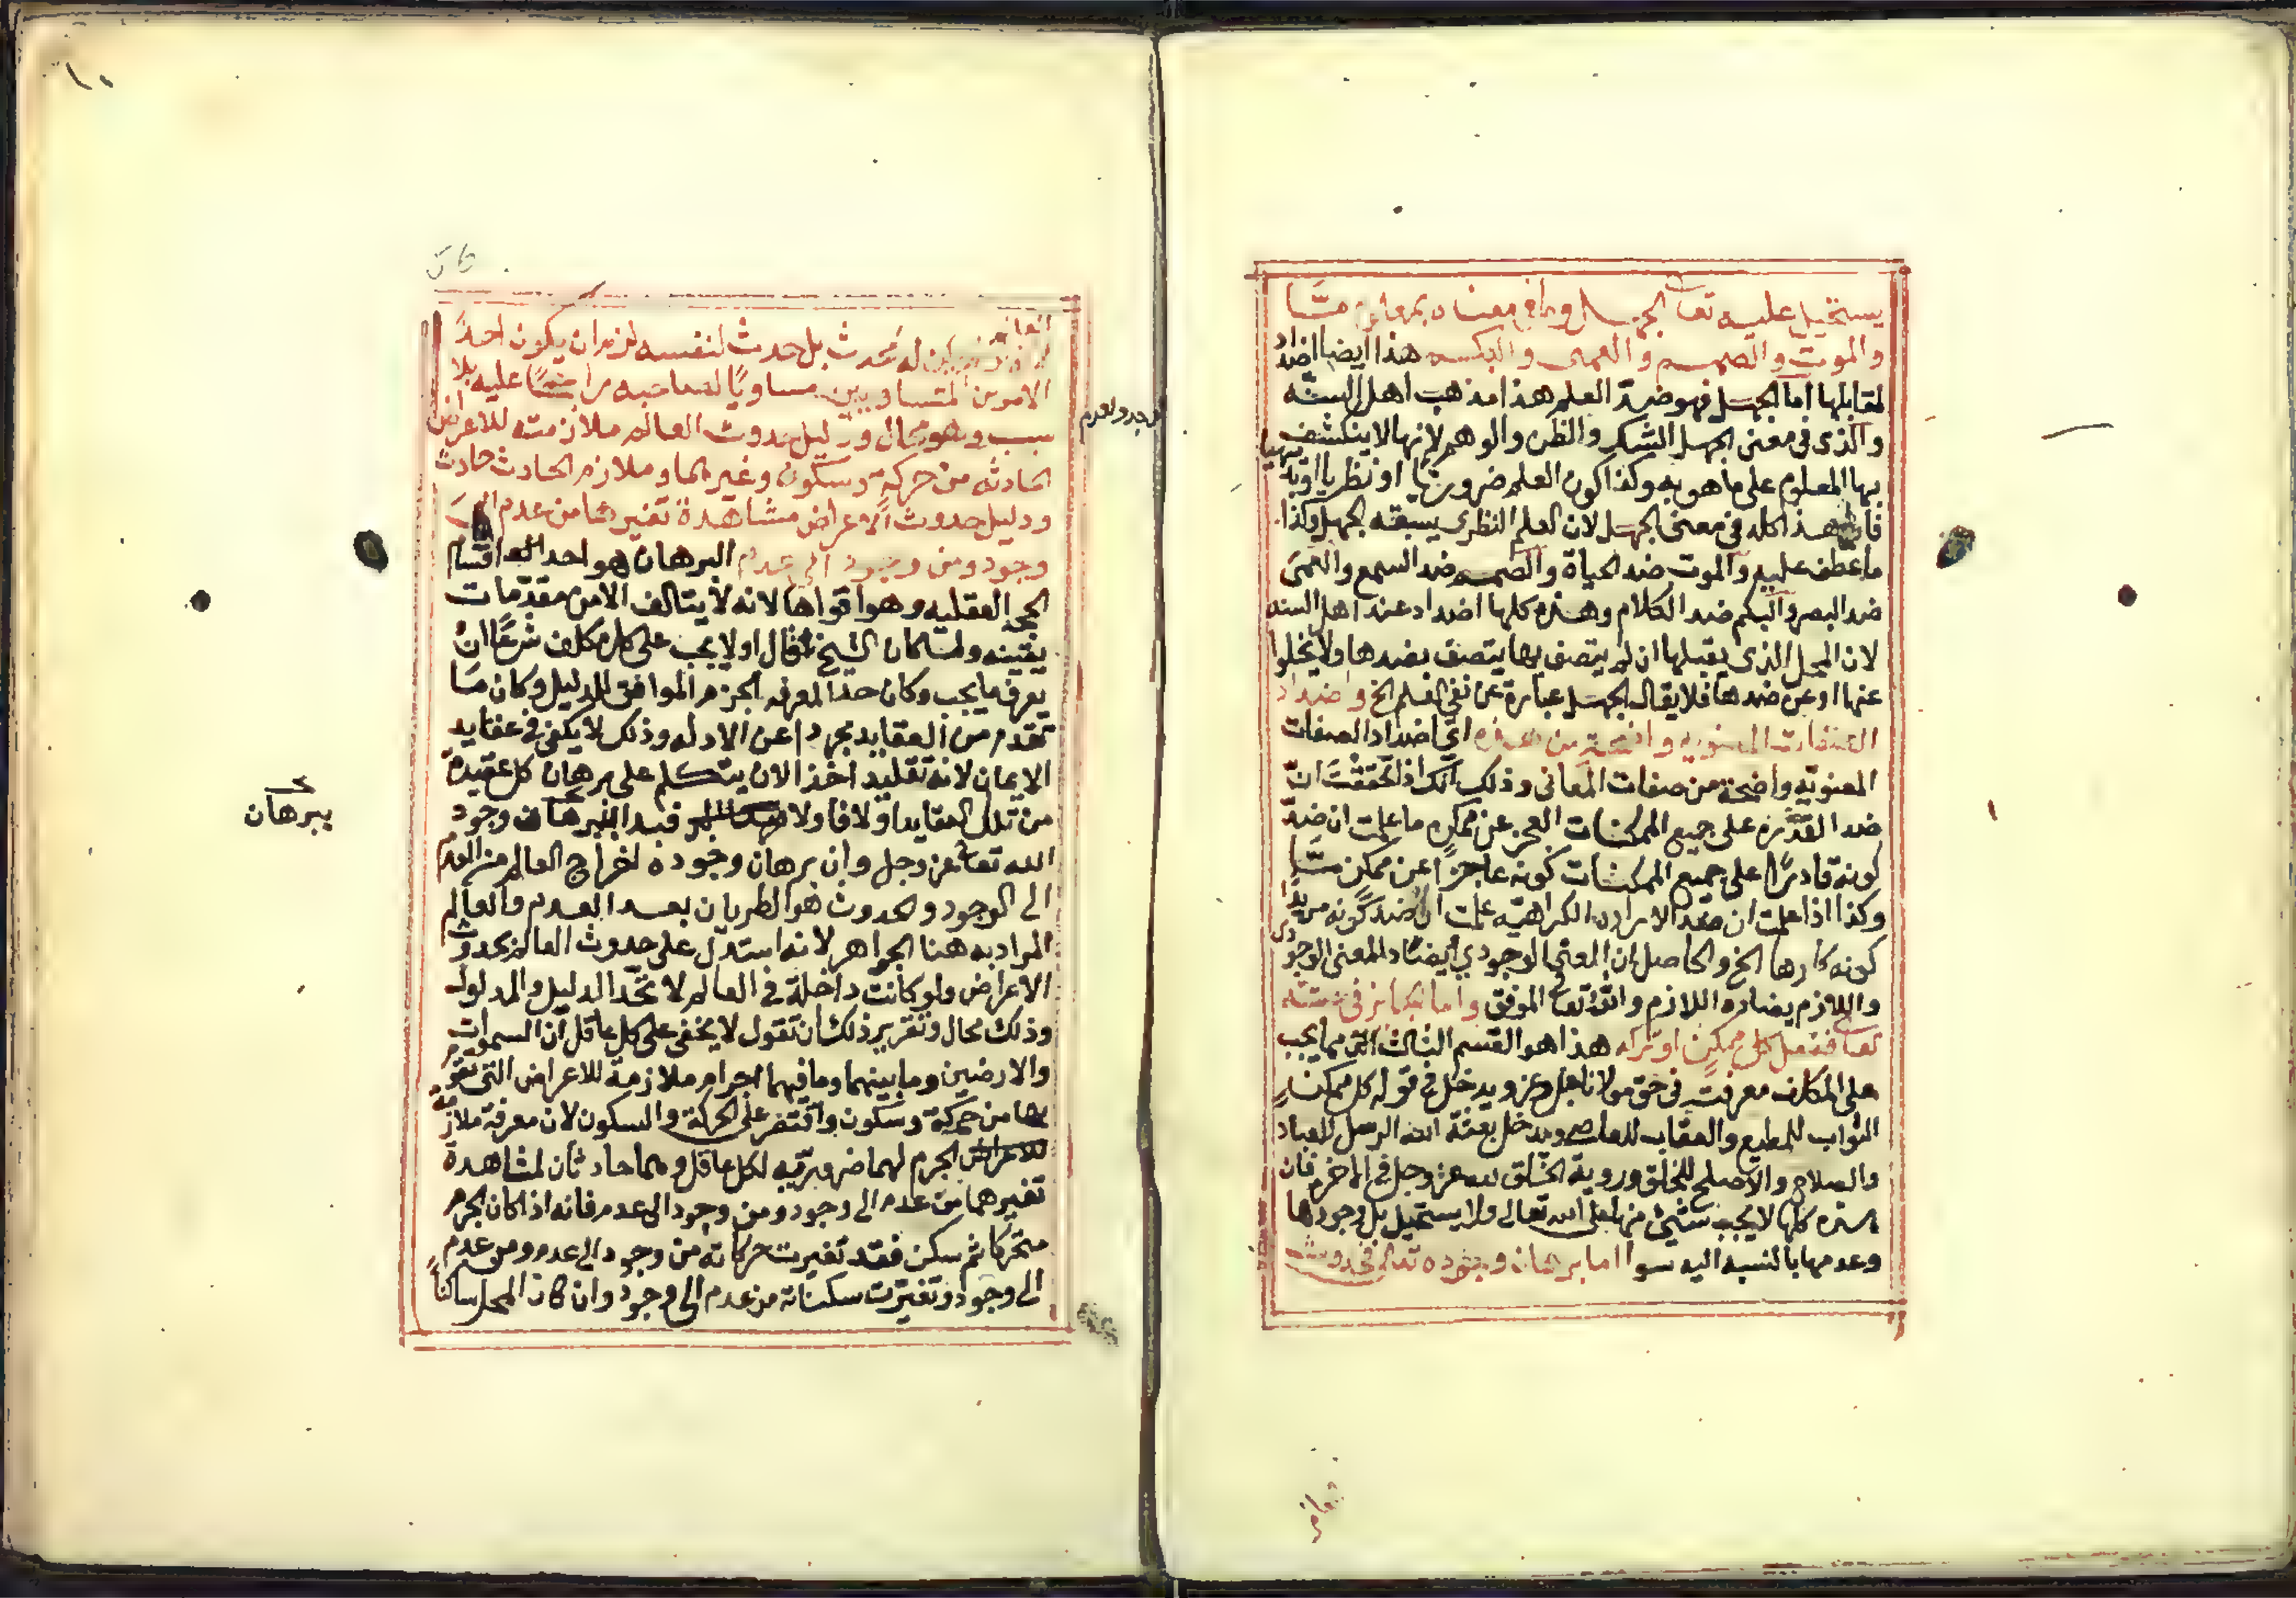 يستحيل عليه تعالى الجهل وما في معناه بمعلوم مّا
والموت والصمم والعمى والبكم هذا ايضا اضداد
لمقابلها اما الجهل فهو ضد العلم هذا مذهب اهل السنه
والذى فى معنى الجهل الشك والظن والوهم لانها لا ينكشف
بها المعلوم على ما هو به وكذا كون العلم ضروريا او نظريا او بديهيا
فان هذا كله فى معنى الجهل لان العلم النظرى يسبقه الجهل وكذا
ما عطف عليه والموت ضد الحياة والصمم ضد السمع والعمى
ضد البصر والبكم ضد الكلام وهذه كلها اضداد عند اهل السنه
لان المحل الذى يقبلها ان لم يتصف بها يتصف بضدها ولا يخلوا
عنها او عن ضدها فلا يقال الجهل عبارة عن نفى العلم الخ واضداد
الصفات المعنويه واضحة من هذه اى اضداد الصفات
المعنويّه واضحة من صفات المعانى وذلك انك اذا تحققت انّ
ضد القدره على جميع الممكنات العجز عن ممكن ما علمت ان ضدّ
كونه قادرًا على جميع الممكنات كونه عاجزًا عن ممكن مّا
وكذا اذا علمت ان ضد الاراده الكراهيّه علمت ان ضد كونه مريدا
كونه كارها الخ والحاصل ان المعنى الوجودي يضاد المعنى الوجودى
واللازم يضاده اللازم والله تعالى الموفق واما الجائز فى حقه
تعالى ففعل كل ممكن او تركه هذا هو القسم الثالث الذى مما يجب
على المكلف معرفته فى حق مولانا جل وعز ويدخل فى قوله كل ممكن
الثواب للمطيع والعقاب للعاصى ويدخل بعثة الله الرسل للعباد
والصلاح والاصلح للخلق وروية الخلق لله عز وجل فى الاخره فان
هذه كلها لا يجب شيئ منها على الله تعالى ولا يستحيل بل وجودها
وعدمها بالنسبه اليه سوا اما برهان وجوده تعالى فحدوث
العالم
لانه لو لم يكن له مُحدث بل حدث لنفسه لزم ان يكون احد
الامرين المتساويين مساويًا لصاحبه راجحًا عليه بلا
سبب وهو محال ودليل حدوث العالم ملازمته للاعراض
الحادثه من حركة وسكون وغيرهما وملازم الحادث حادث
ودليل حدوث الاعراض مشاهدة تغيرها من عدم الى
وجود ومن وجود الى عدم البرهان هو احد اقسام
الحجة العقليه وهو اقواها لانه لا يتالف الا من مقدّمات
يقينه ولما كان الشيخ قال اولا يجب على كل مكلف شرعًا ان
يعرف ما يجب وكان حد المعرفه الجزم الموافق للدليل وكان مَا
تقدم من العقايد مجردا عن الادله وذلك لا يكفى فى عقايد
الايمان لانه تقليد اخذ الان يتكلم على برهان كل عقيدة
من تلك العقايد اولا فاولا فبدا ببرهان وجود
الله تعالى عز وجل وان برهان وجوده اخراج العالم من العدم
الى الوجود والحدوث هو الطريان بعد العدم والعالم
المراد به هنا الجواهر لانه استدل على حدوث العالم بحدوث
الاعراض ولو كانت داخلة فى العالم لاتحّد الدليل والمدلول
وذلك محال وتقرير ذلك ان تقول لا يخفى على كل عاقل ان السموات
والارضين وما بينهما وما فيهما اجرام ملازمة للاعراض التى تقوم
بها من حركة وسكون واقتصر على الحركة والسكون لان معرفة ملازمة
الجرم لهما ضروريّه لكل عاقل وهما حادثان لمشاهدة
تغيرهما من عدم الى وجود ومن وجود الى عدم فانه اذا كان الجرم
متحركا ثم سكن فقد تغيرت حركاته من وجود الى عدم ومن عدم
الى وجود وتغيّرت سكناته من عدم الى وجود وان كان المحل ساكنًا
ببرهان